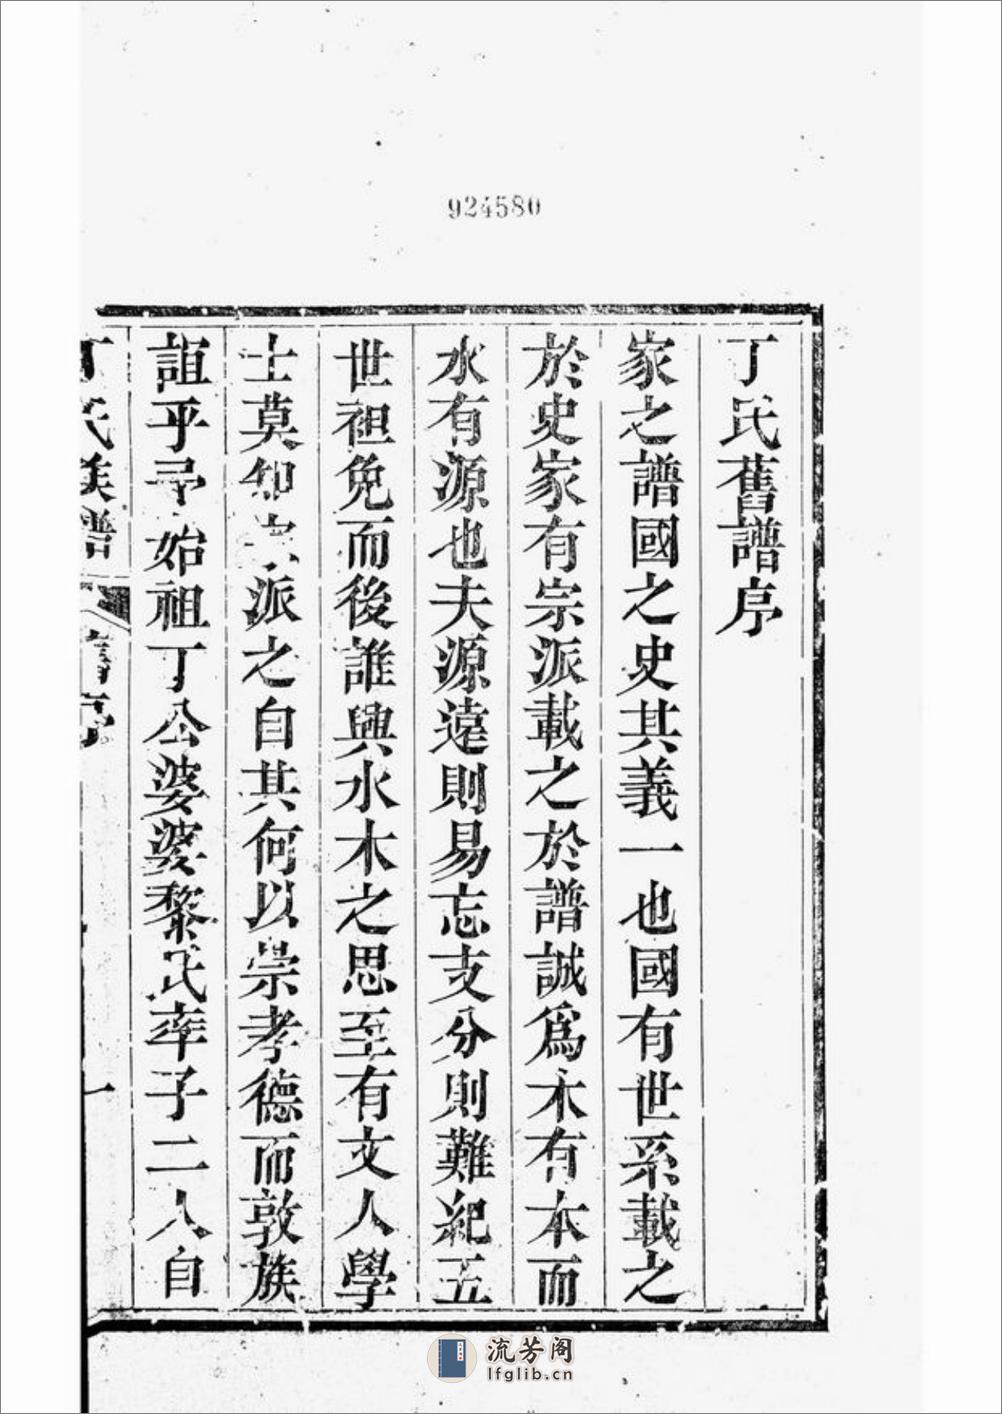 924580
丁氏舊譜序
家之譜國之史其義一也國有世系載之
於史家有宗派載之於譜誠爲木有本而
水有源也夫源遠則易忘支分則難紀五
世袒免而後誰興水木之思至有文人學
士莫知宗派之自其何以崇孝德而敦族
誼乎尋始祖丁公婆婆黎氏率子二人自
丁氏族譜 舊序 一
流芳阁
lfglib.cn